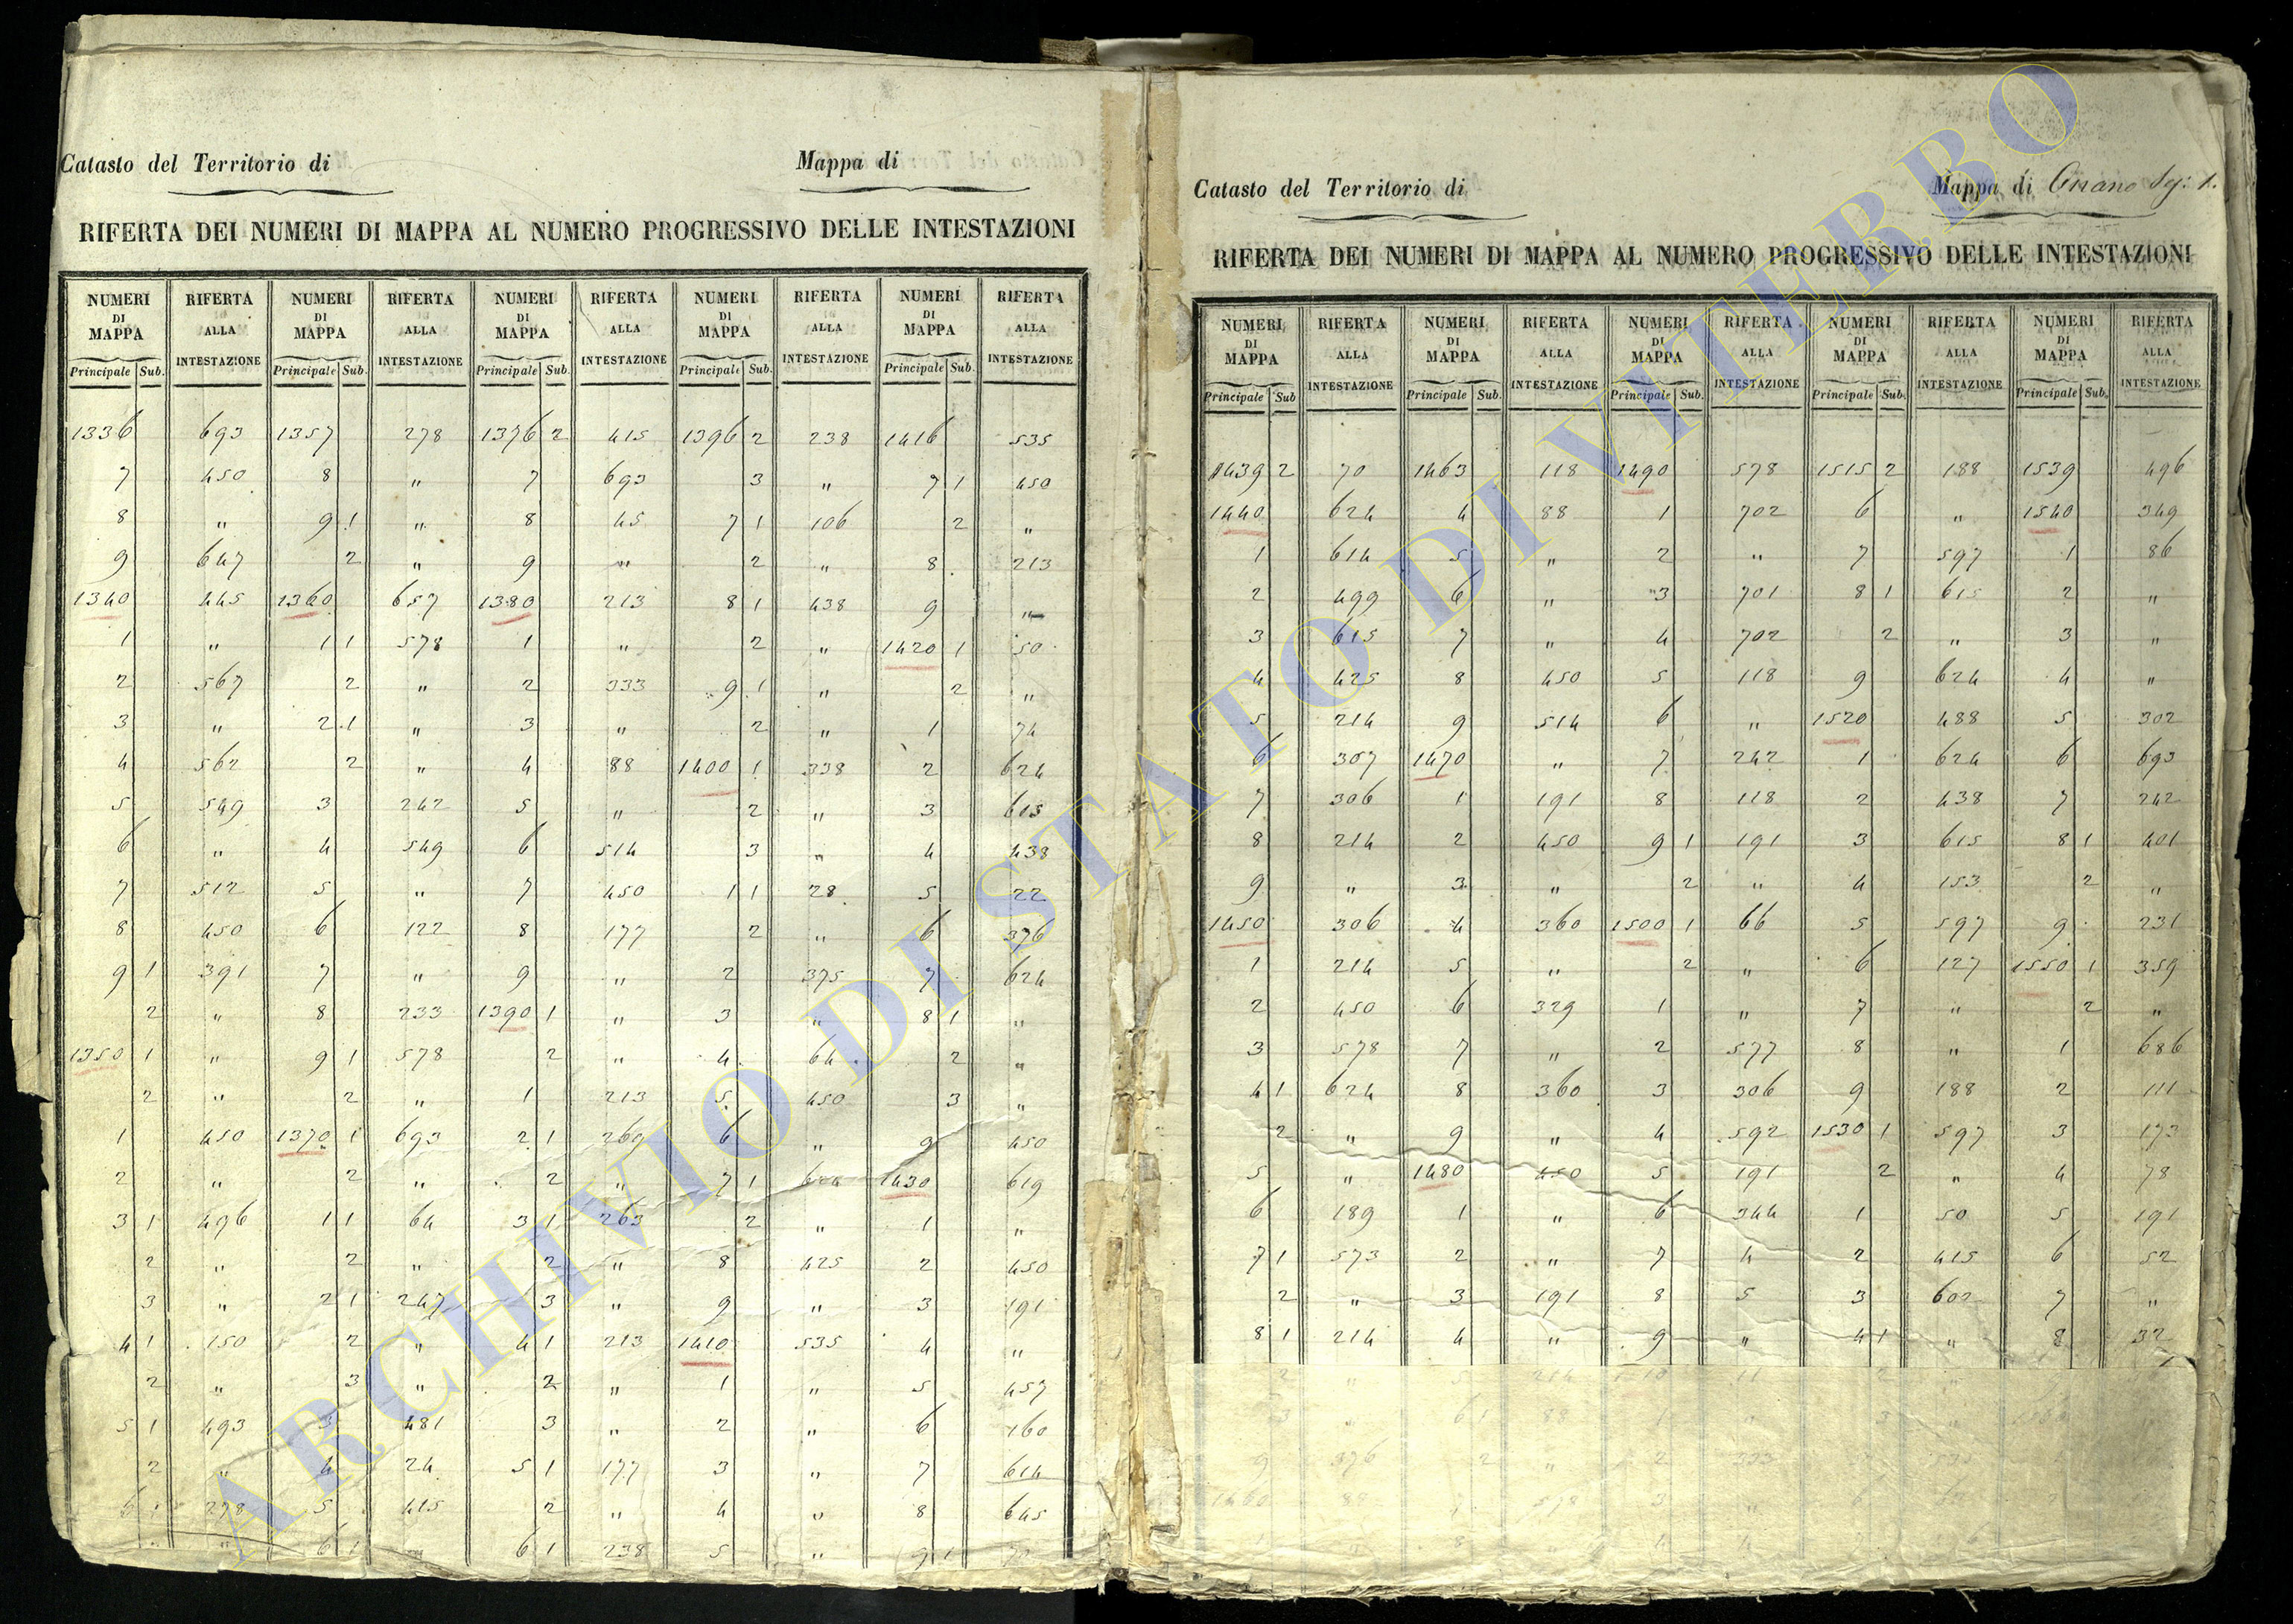 Catasto del Territorio di
Mappa di
RIFERTA DEI NUMERI DI MAPPA AL NUMERO PROGRESSIVO DELLE INTESTAZIONI
NUMERI DI MAPPA RIFERTA ALLA INTESTAZIONE NUMERI DI MAPPA RIFERTA ALLA INTESTAZIONE NUMERI DI MAPPA RIFERTA ALLA INTESTAZIONE NUMERI DI MAPPA RIFERTA ALLA INTESTAZIONE NUMERI DI MAPPA RIFERTA ALLA INTESTAZIONE
Principale Sub. Principale Sub. Principale Sub. Principale Sub. Principale Sub.
1336 693 1357 278 1376 2 415 1396 2 238 1416 535
7 450 8 " 7 693 3 " 7 1 450
8 " 9 1 " 8 45 7 1 106 2 "
9 647 2 " 9 " 2 " 8 213
1340 445 1360 657 1380 213 8 1 438 9 "
1 " 1 1 578 1 " 2 " 1420 1 50
2 567 2 " 2 333 9 1 " 2 "
3 " 2 1 " 3 " 2 " 1 74
4 562 2 " 4 88 1400 1 338 2 624
5 549 3 242 5 " 2 " 3 615
6 " 4 549 6 514 3 " 4 438
7 512 5 " 7 450 1 1 28 5 22
8 450 6 122 8 177 2 " 6 376
9 1 391 7 " 9 " 2 375 7 624
2 " 8 233 1390 1 " 3 " 8 1 "
1350 1 " 9 1 578 2 " 4 64 2 "
2 " 2 " 1 213 5 450 3 "
1 450 1370 1 693 2 1 269 6 " 9 450
2 " 2 " 2 " 7 1 1430 619
3 1 496 1 1 64 3 1 263 2 " 1 "
2 " 2 " 2 " 8 425 2 450
3 " 2 1 247 3 " 9 " 3 191
4 1 150 2 " 4 1 213 1410 535 4 "
2 " 3 " 2 " 1 " 5 457
5 1 493 3 481 3 " 2 " 6 160
2 " 4 24 5 1 177 3 " 7 614
6 1 278 5 415 2 " 4 " 8 645
" 6 1 6 1 238 5 " 9 1
Catasto del Territorio di
Mappa di Onano Sez: 1.
RIFERTA DEI NUMERI DI MAPPA AL NUMERO PROGRESSIVO DELLE INTESTAZIONI
NUMERI DI MAPPA RIFERTA ALLA INTESTAZIONE NUMERI DI MAPPA RIFERTA ALLA INTESTAZIONE NUMERI DI MAPPA RIFERTA ALLA INTESTAZIONE NUMERI DI MAPPA RIFERTA ALLA INTESTAZIONE NUMERI DI MAPPA RIFERTA ALLA INTESTAZIONE
Principale Sub Principale Sub. Principale Sub. Principale Sub. Principale Sub.
1439 2 70 1463 118 1490 578 1515 2 188 1539 496
1440 624 4 88 1 702 6 " 1540 349
1 614 5 " 2 " 7 597 1 86
2 499 6 " 3 701 8 1 615 2 "
3 615 7 " 4 702 2 " 3 "
4 425 8 450 5 118 9 624 4 "
5 214 9 514 6 " 1520 488 5 302
6 307 1470 " 7 242 1 624 6 693
7 306 1 191 8 118 2 438 7 242
8 214 2 450 9 1 191 3 615 8 1 401
9 " 3 " 2 " 4 153 2 "
1450 306 4 360 1500 1 66 5 597 9 231
1 214 5 " 2 " 6 127 1550 1 359
2 450 6 329 1 " 7 " 2 "
3 578 7 " 2 577 8 " 1 686
4 1 624 8 360 3 306 9 188 2 111
2 " 9 " 4 592 1530 1 597 3 173
5 " 1480 450 5 191 2 " 4 78
6 189 1 " 6 344 1 50 5 191
7 1 573 2 " 7 4 2 415 6 52
2 " 3 191 8 5 3 602 7 "
8 1 214 4 " 9 " 4 1 " 8 32
3 " 6 1 88 1 " 3
9 376 2 " 2 333
1460 88 578 3 "
ARCHIVIO DI STATO DI VITERBO